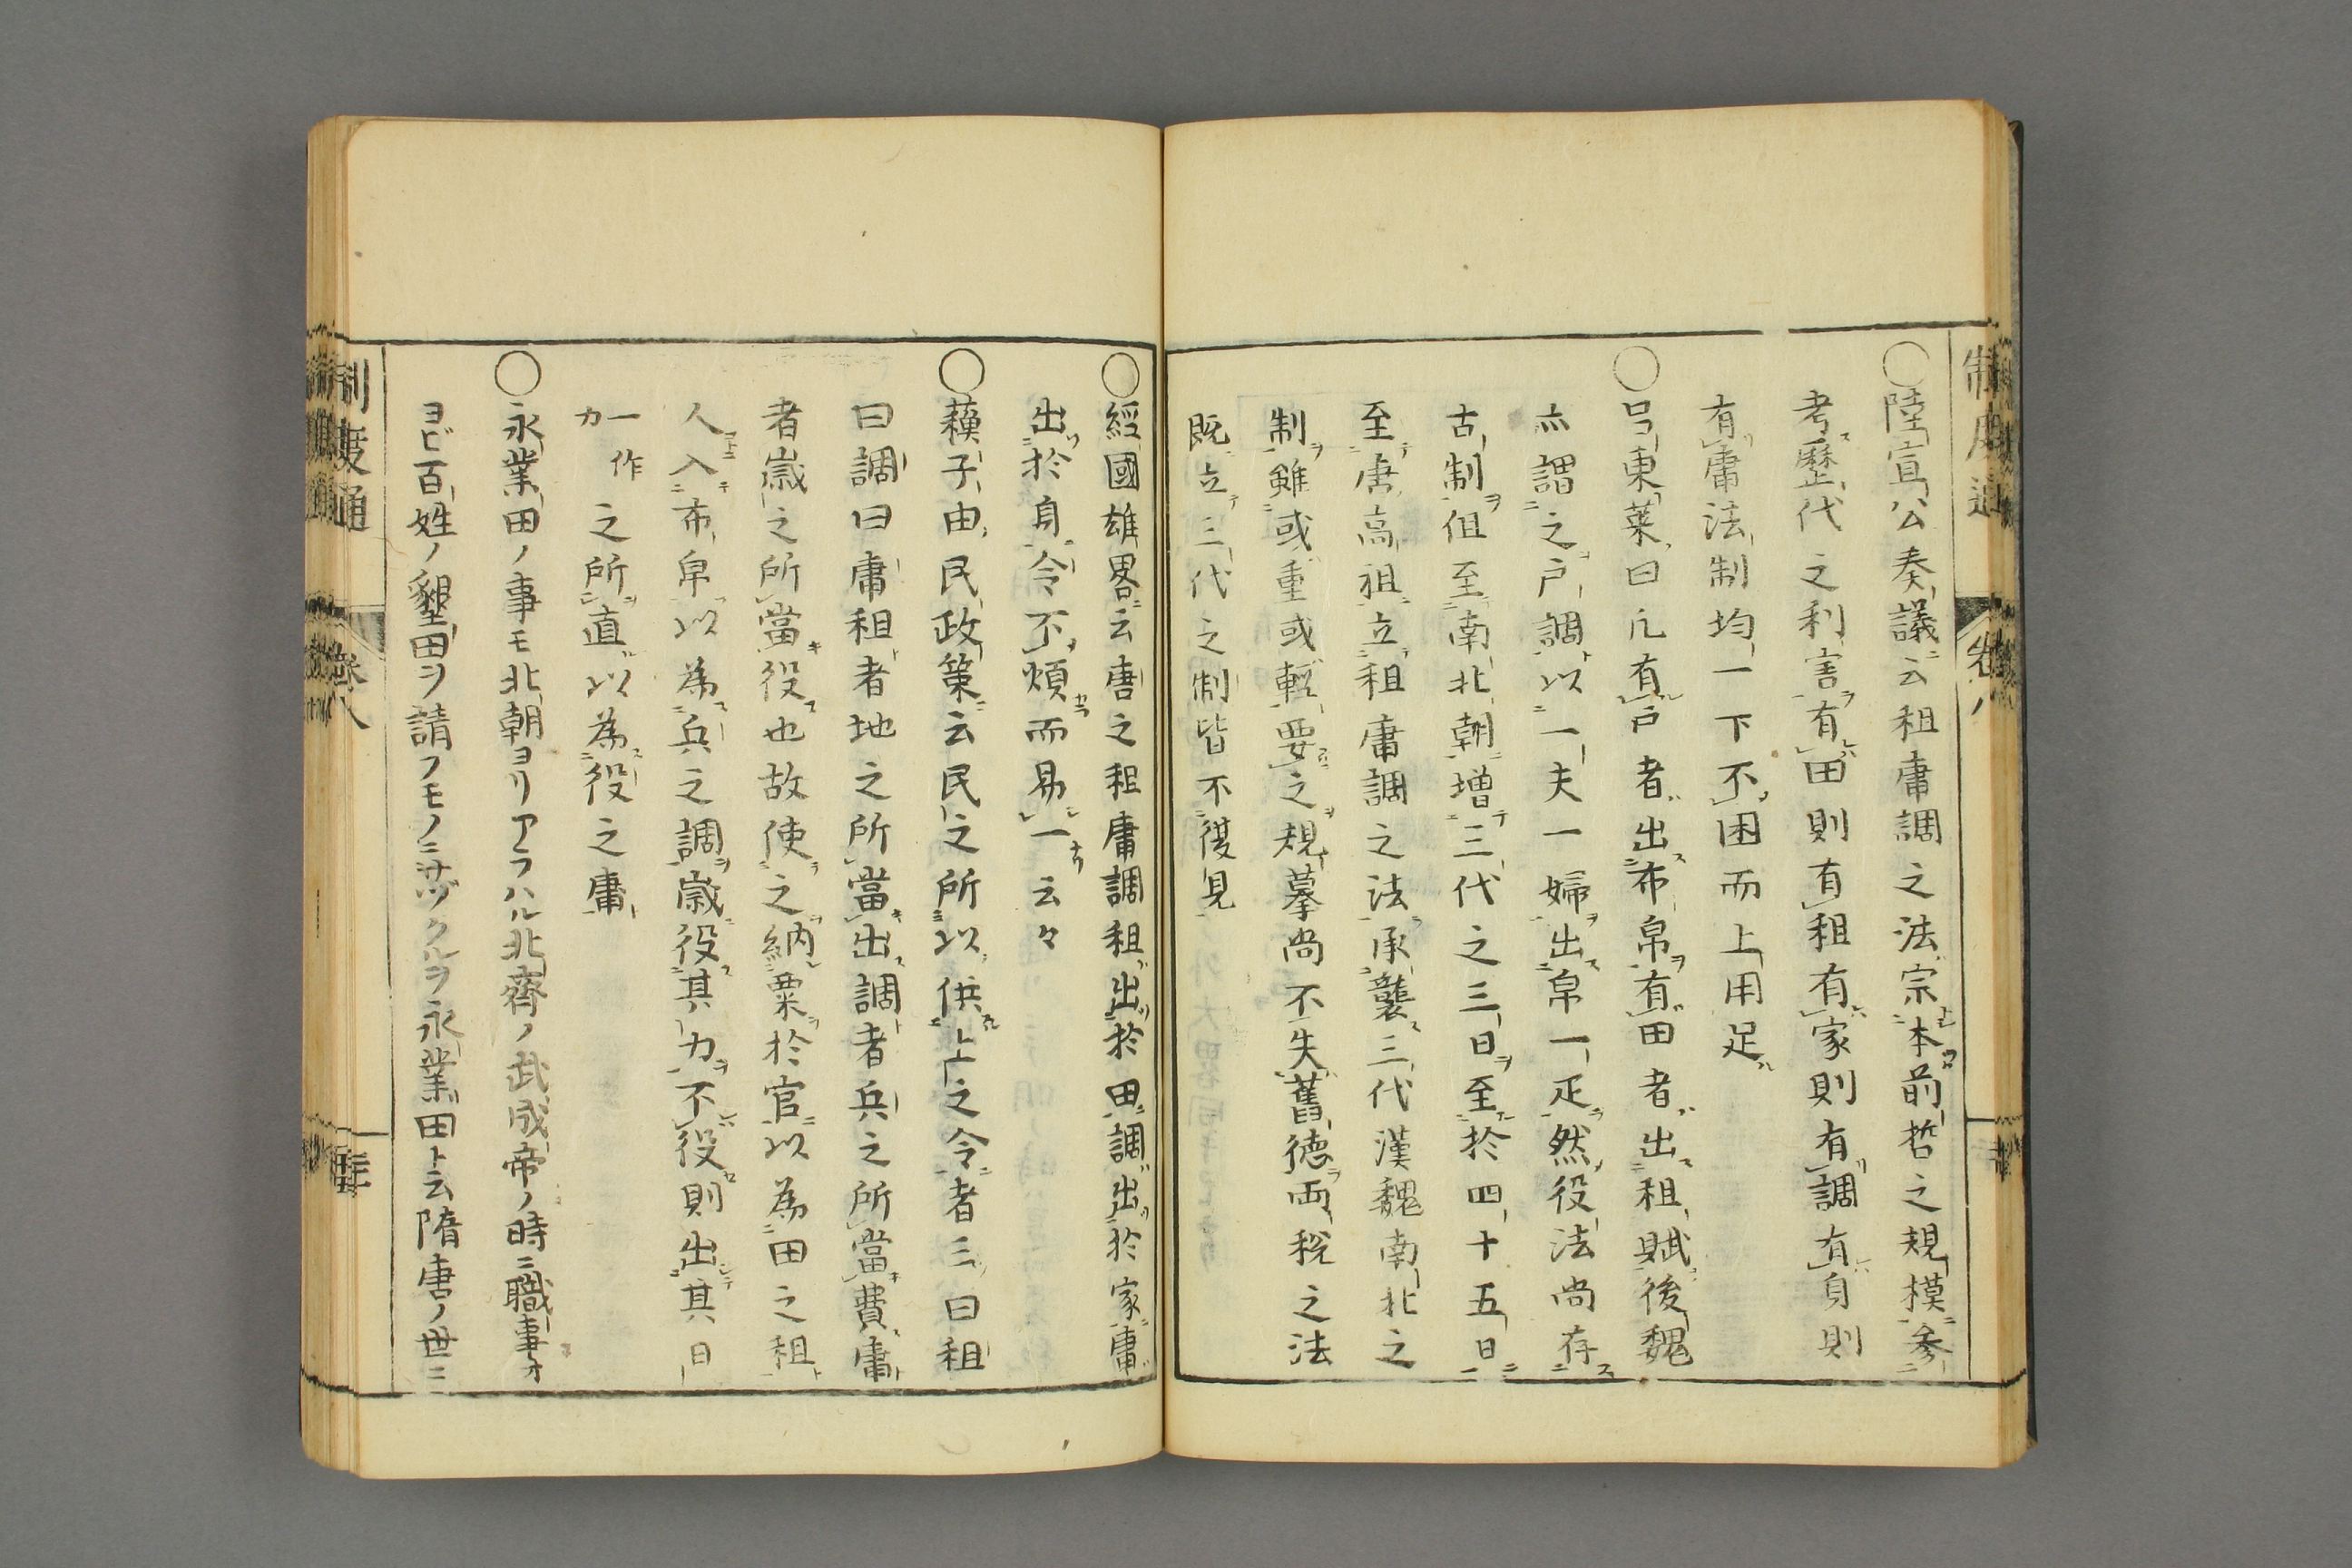 ○陸宣公奏議云租庸調之法宗本前哲之規模參
考歷代之利害有田則有租有家則有調有身則
有庸法制均一下不困而上用足
○呂東萊曰凢有戸者出布帛有田者出租賦後魏
亦謂之戸調以一夫一婦出帛一疋然役法尚存
古制但至南北朝増三代之三日至於四十五日
至唐高祖立租庸調之法承襲三代漢魏南北之
制雖或重或軽要之規摹尚不失舊德両税之法
既立三代之制皆不復見
○經國雄畧云唐之租庸調租出於田調出於家庸
出於身令不煩而易一云々
○蘓子由民政策云民之所以供上之令者三曰租
曰調曰庸租者地之所當出調者兵之所當費庸
者歳之所當役也故使之納粟於官以為田之租
人入布帛以為兵之調歳役其力不役則出其日
一作力之所直以為役之庸
○永業田ノ事モ北朝ヨリアラハル北齊ノ武成帝ノ時ニ職事オ
ヨビ百姓ノ墾田ヲ請フモノニサヅクルヲ永業田ト云隋唐ノ世ニ
制度通
卷八